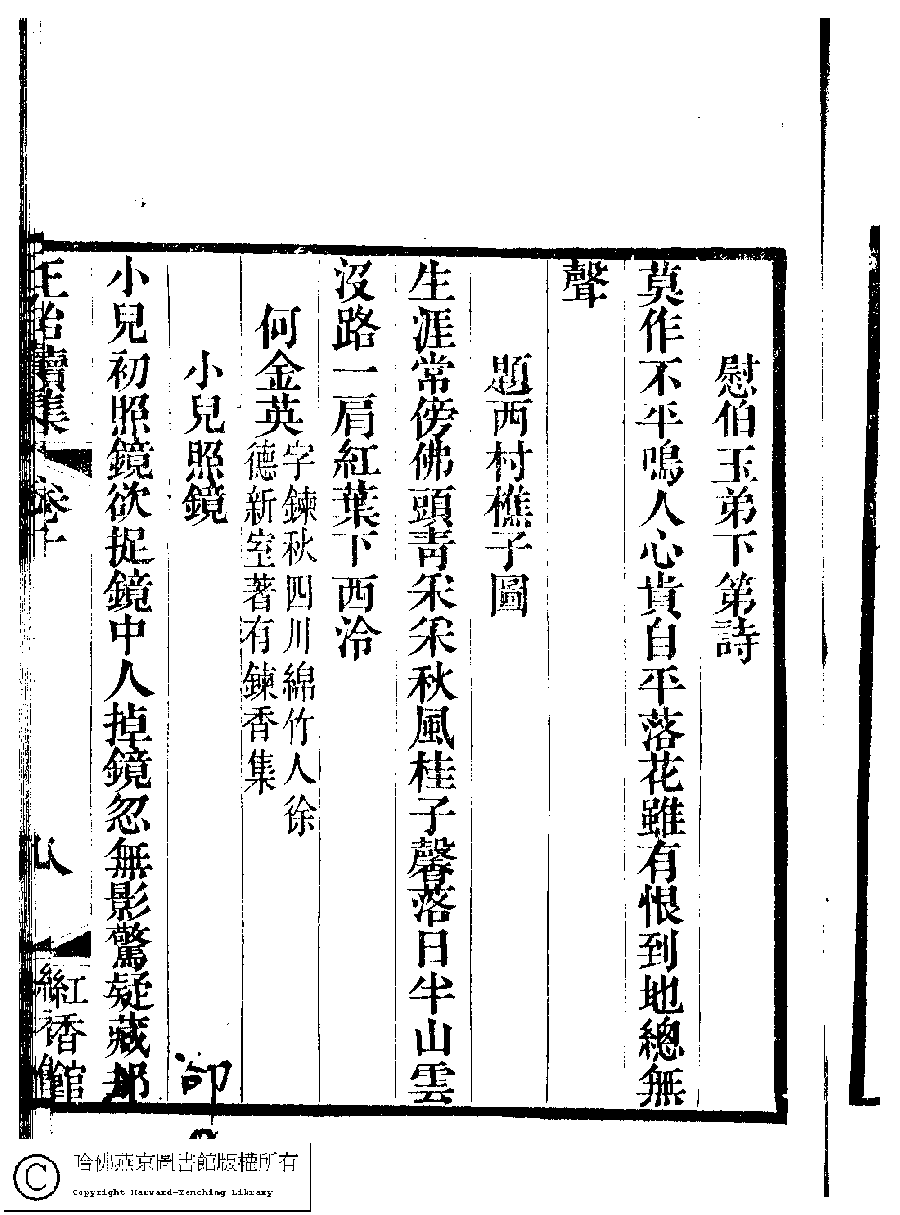 慰伯玉弟下第詩
莫作不平鳴人心貴自平落花雖有恨到地總無
聲
題西村樵子圖
生涯常傍佛頭青釆釆秋風桂子馨落日半山雲
沒路一肩紅葉下西泠
何金英字鍊秋四川綿竹人徐
德新室著有鍊香集
小兒照鏡
小兒初照鏡欲捉鏡中人掉鏡忽無影驚疑藏
卻
集
八
紅香館
哈佛燕京圖書館版權所有
Copyright Harvard-Yenching Library